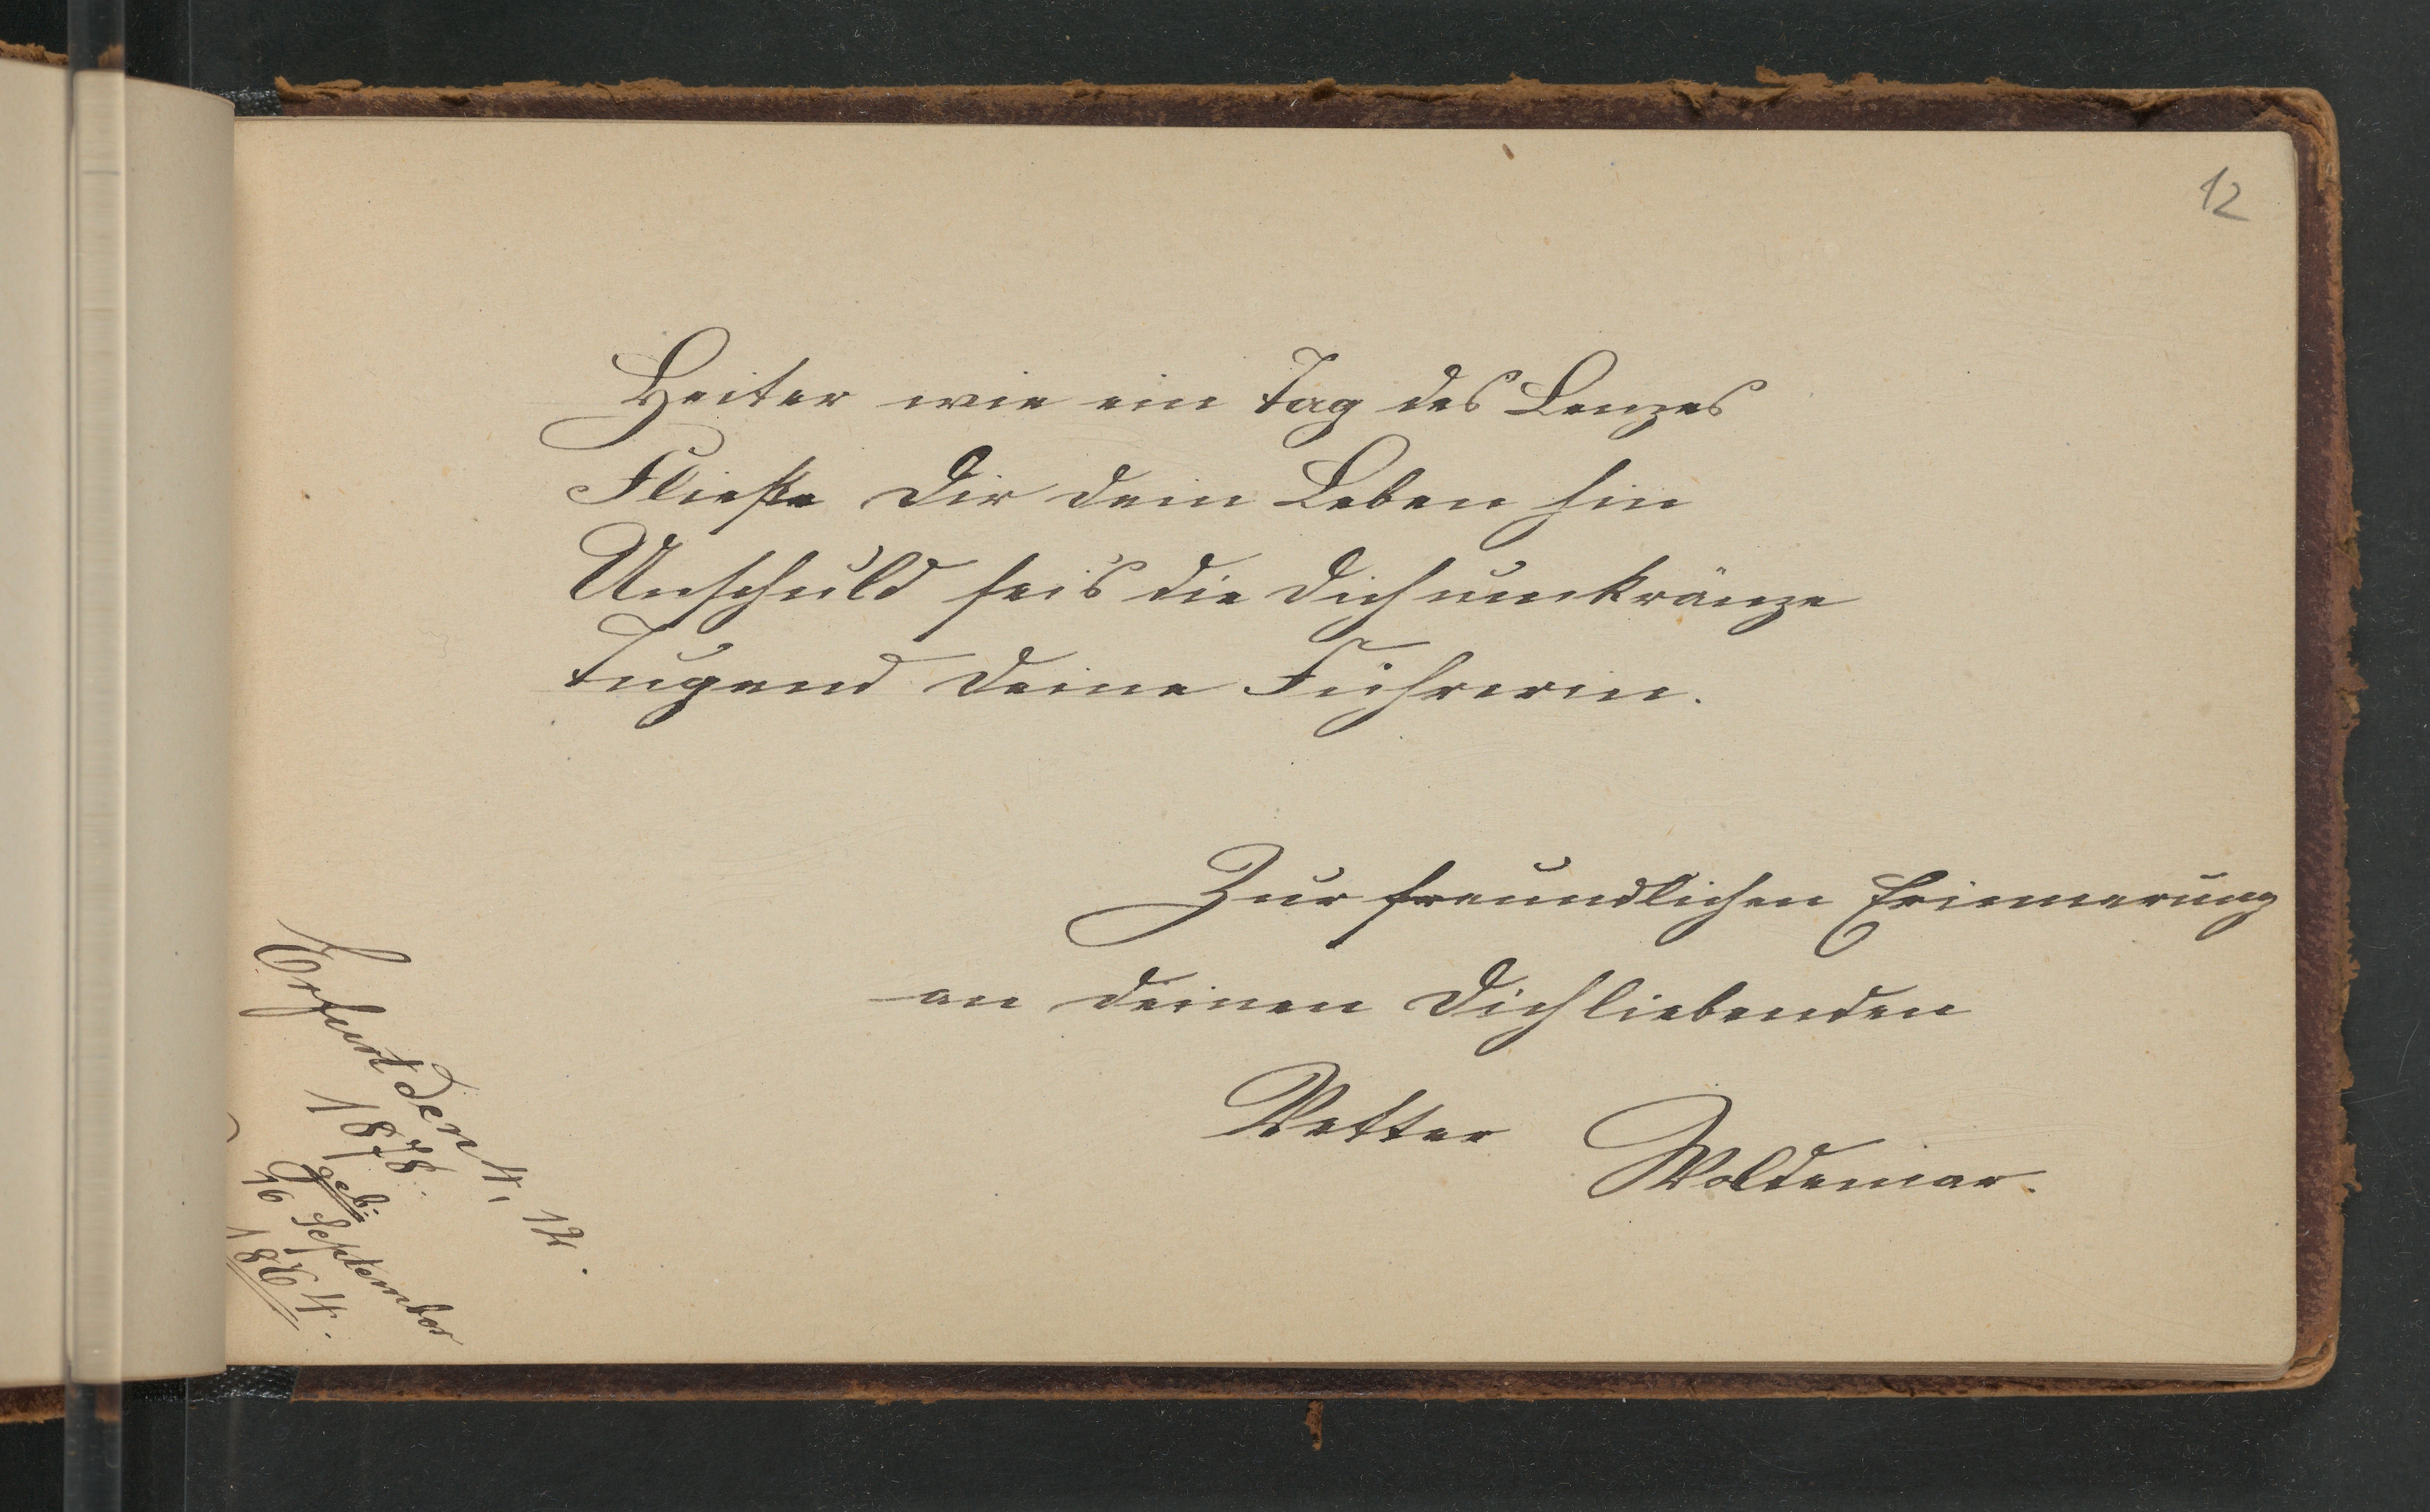 12
Heiter wie ein Tag des Lenzes
Fließe Dir dein Leben hin
Unschuld sei's die Dich umkränze
Tugend deine Führerin.
Zur freundlichen Erinnerung
an deinen Dich liebenden
Vetter Woldemar.
Erfurt den 4, 12.
1878.
geb.
16 September
1864.